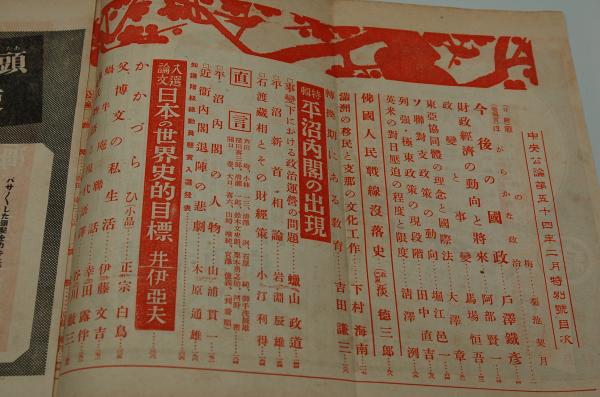 中央公論第五十四年二月特別號目次
梅
菊池契月
今後の國政
戶澤鐵彥
財政經濟の動向と將來
阿部賢一
政變と事變
馬場恒吾
東亞協同體の理念と國際法
大澤章
ソ聯對支政策の動向
堀江邑一
列强極東政策の現段階
田中直吉
英米の對日壓迫の程度と限度
淸澤洌
佛國人民戰線沒落史
淡德三郎
滿洲の移民と支那の文化工作
下村海南
轉換期にある敎育
吉田謙三
特輯
平沼內閣の出現
事變下における政治運營の問題
蠟山政道
平沼新首相論
岩淵辰雄
石渡藏相とその財經策
小汀利得
直言
知識階級總動員懸賞入選發表
平沼內閣の人物
山浦貫一
近衞內閣退陣の悲劇
木原通雄
入選論文
日本の世界史的目標
井伊亞夫
かかづらひ
正宗白鳥
父博文の私生活
伊藤文吉
蝸牛庵聯話
幸田露伴
現代
谷川徹三
頭